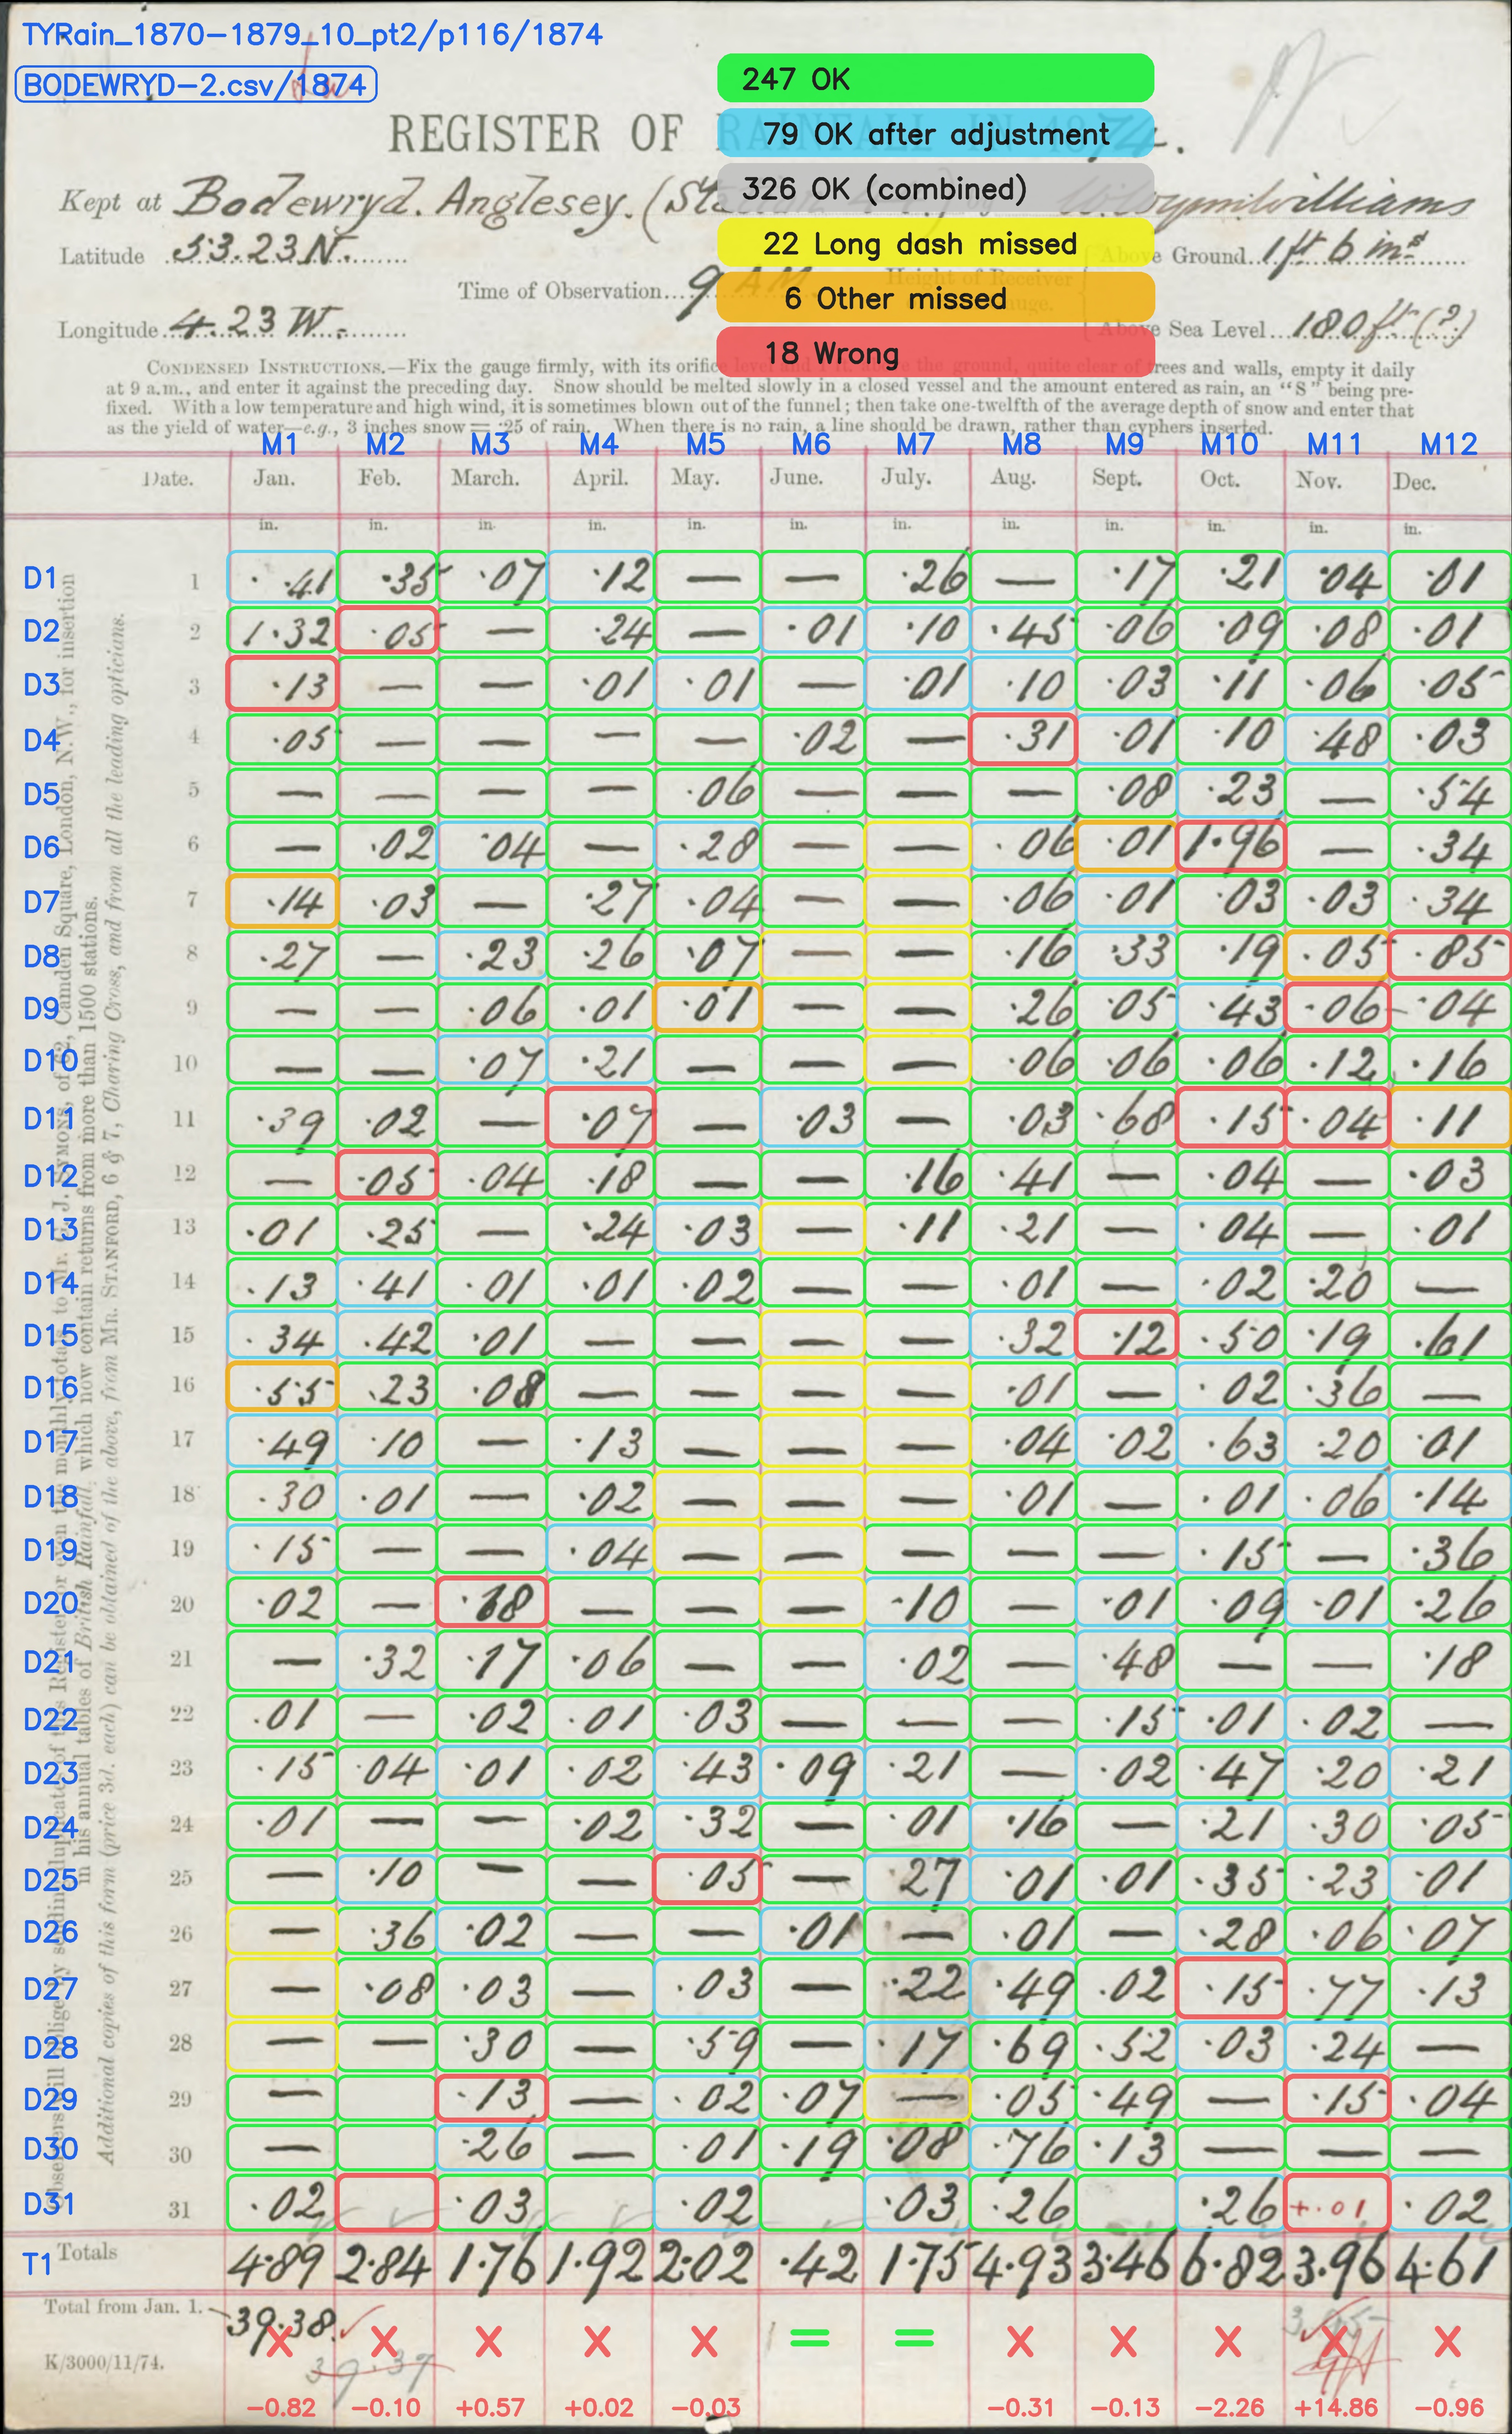 TYRain_1870-1879_10_pt2/p116/1874
BODEWRYD-2.csv/1874
247 OK
79 OK after adjustment
326 OK (combined)
22 Long dash missed
6 Other missed
18 Wrong
REGISTER OF RAINFALL IN 1874.
Kept at Bodewryd. Anglesey.
Latitude 53.23 N.
Time of Observation 9 AM
Above Ground 1 ft 6 ins
Longitude 4.23 W.
Above Sea Level 180 ft (?)
CONDENSED INSTRUCTIONS.—Fix the gauge firmly, with its orifice level and 1 ft. above the ground, quite clear of trees and walls, empty it daily
at 9 a.m., and enter it against the preceding day. Snow should be melted slowly in a closed vessel and the amount entered as rain, an "S" being pre-
fixed. With a low temperature and high wind, it is sometimes blown out of the funnel; then take one-twelfth of the average depth of snow and enter that
as the yield of water—e.g., 3 inches snow = ·25 of rain. When there is no rain, a line should be drawn, rather than cyphers inserted.
M1 M2 M3 M4 M5 M6 M7 M8 M9 M10 M11 M12
Date. Jan. Feb. March. April. May. June. July. Aug. Sept. Oct. Nov. Dec.
in. in. in. in. in. in. in. in. in. in. in. in.
D1 1 ·41 ·35 ·07 ·12 — — ·26 — ·17 ·21 ·04 ·01
D2 2 1·32 ·05 — ·24 — ·01 ·10 ·45 ·06 ·09 ·08 ·01
D3 3 ·13 — — ·01 ·01 — ·01 ·10 ·03 ·11 ·06 ·05
D4 4 ·05 — — — — ·02 — ·31 ·01 ·10 ·48 ·03
D5 5 — — — — ·06 — — — ·08 ·23 — ·54
D6 6 — ·02 ·04 — ·28 — — ·06 ·01 1·96 — ·34
D7 7 ·14 ·03 — ·27 ·04 — — ·06 ·01 ·03 ·03 ·34
D8 8 ·27 — ·23 ·26 ·07 — — ·16 ·33 ·19 ·05 ·85
D9 9 — — ·06 ·01 ·01 — — ·26 ·05 ·43 ·06 ·04
D10 10 — — ·07 ·21 — — — ·06 ·06 ·06 ·12 ·16
D11 11 ·39 ·02 — ·07 — ·03 — ·03 ·68 ·15 ·04 ·11
D12 12 — ·05 ·04 ·18 — — ·16 ·41 — ·04 — ·03
D13 13 ·01 ·25 — ·24 ·03 — ·11 ·21 — ·04 — ·01
D14 14 ·13 ·41 ·01 ·01 ·02 — — ·01 — ·02 ·20 —
D15 15 ·34 ·42 ·01 — — — — ·32 ·12 ·50 ·19 ·61
D16 16 ·55 ·23 ·08 — — — — ·01 — ·02 ·36 —
D17 17 ·49 ·10 — ·13 — — — ·04 ·02 ·63 ·20 ·01
D18 18 ·30 ·01 — ·02 — — — ·01 — ·01 ·06 ·14
D19 19 ·15 — — ·04 — — — — — ·15 — ·36
D20 20 ·02 — ·18 — — — ·10 — ·01 ·09 ·01 ·26
D21 21 — ·32 ·17 ·06 — — ·02 — ·48 — — ·18
D22 22 ·01 — ·02 ·01 ·03 — — — ·15 ·01 ·02 —
D23 23 ·15 ·04 ·01 ·02 ·43 ·09 ·21 — ·02 ·47 ·20 ·21
D24 24 ·01 — — ·02 ·32 — ·01 ·16 — ·21 ·30 ·05
D25 25 — ·10 — — ·05 — ·27 ·01 ·01 ·35 ·23 ·01
D26 26 — ·36 ·02 — — ·01 — ·01 — ·28 ·06 ·07
D27 27 — ·08 ·03 — ·03 — ·22 ·49 ·02 ·15 ·77 ·13
D28 28 — — ·30 — ·59 — ·17 ·69 ·52 ·03 ·24 —
D29 29 — ·13 — ·02 ·07 — ·05 ·49 — ·15 ·04
D30 30 — ·26 — ·01 ·19 ·08 ·76 ·13 — — —
D31 31 ·02 ·03 ·02 ·03 ·26 ·26 +·01 ·02
T1 Totals 4·89 2·84 1·76 1·92 2·02 ·42 1·75 4·93 3·46 6·82 3·96 4·61
Total from Jan. 1. 39·38
39·37
3·95
K/3000/11/74.
−0.82 −0.10 +0.57 +0.02 −0.03 −0.31 −0.13 −2.26 +14.86 −0.96
Observers will oblige by sending duplicates of this Register, or even the monthly totals, to Mr. G. J. SYMONS, of 62, Camden Square, London, N.W., for insertion
in his annual tables of British Rainfall, which now contain returns from more than 1500 stations.
Additional copies of this form (price 3d. each) can be obtained of the above, from MR. STANFORD, 6 & 7, Charing Cross, and from all the leading opticians.